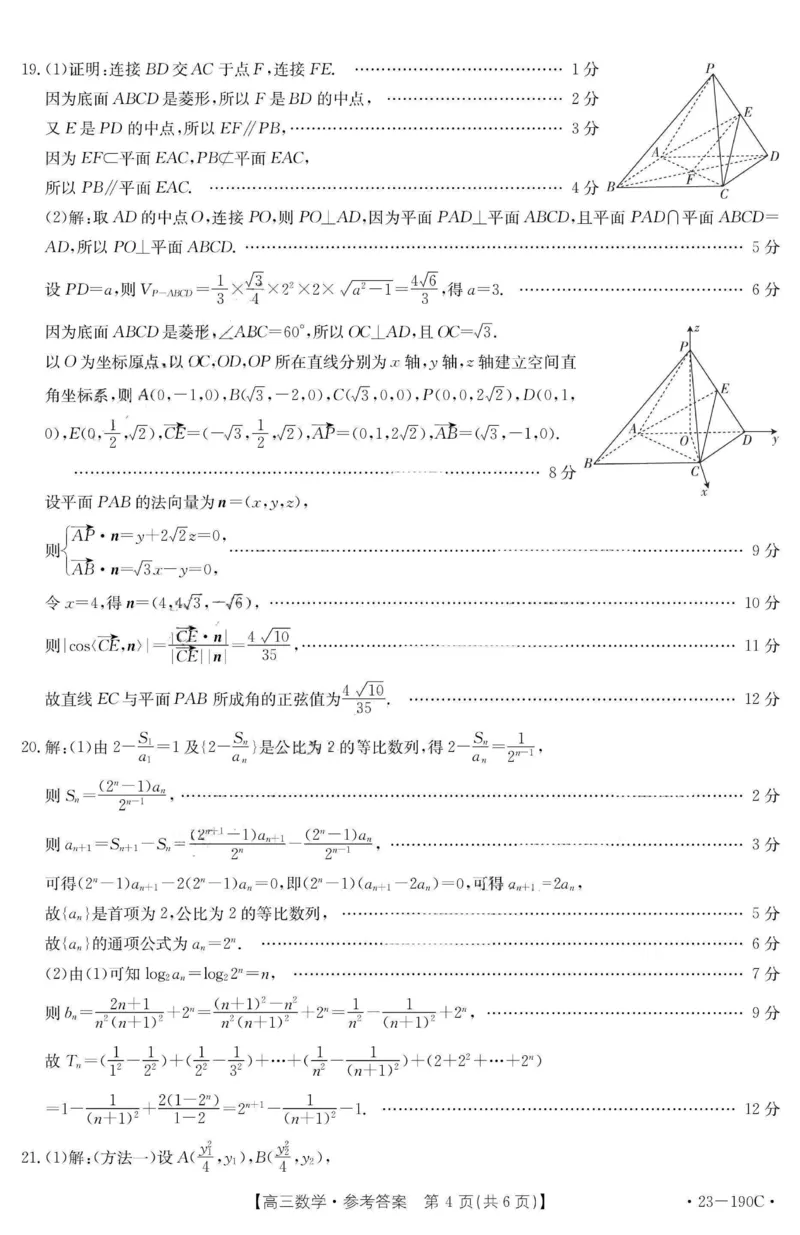 19.(1)证明:连接BD交AC于点F,连接FE. …… 1分
因为底面ABCD是菱形,所以F是BD的中点, …… 2分
又E是PD的中点,所以EF∥PB, …… 3分
因为EF⊂平面EAC,PB⊄平面EAC,
所以PB∥平面EAC. …… 4分
P
E
A
D
F
B
C
(2)解:取AD的中点O,连接PO,则PO⊥AD,因为平面PAD⊥平面ABCD,且平面PAD∩平面ABCD=
AD,所以PO⊥平面ABCD. …… 5分
设PD=a,则V_{P-ABCD}=1/3×√3/4×2²×2×√(a²-1)=4√6/3,得a=3. …… 6分
因为底面ABCD是菱形,∠ABC=60°,所以OC⊥AD,且OC=√3.
以O为坐标原点,以OC,OD,OP所在直线分别为x轴,y轴,z轴建立空间直
角坐标系,则A(0,-1,0),B(√3,-2,0),C(√3,0,0),P(0,0,2√2),D(0,1,
0),E(0,1/2,√2),CE→=(-√3,1/2,√2),AP→=(0,1,2√2),AB→=(√3,-1,0).
…… 8分
z
P
E
A
O
D
y
B
C
x
设平面PAB的法向量为n=(x,y,z),
则{AP→·n=y+2√2z=0,
AB→·n=√3x-y=0, …… 9分
令x=4,得n=(4,4√3,-√6), …… 10分
则|cos⟨CE→,n⟩|=|CE→·n|/|CE→||n|=4√10/35, …… 11分
故直线EC与平面PAB所成角的正弦值为4√10/35. …… 12分
20.解:(1)由2-S₁/a₁=1及{2-Sₙ/aₙ}是公比为2的等比数列,得2-Sₙ/aₙ=1/2ⁿ⁻¹,
则Sₙ=(2ⁿ-1)aₙ/2ⁿ⁻¹, …… 2分
则aₙ₊₁=Sₙ₊₁-Sₙ=(2ⁿ⁺¹-1)aₙ₊₁/2ⁿ-(2ⁿ-1)aₙ/2ⁿ⁻¹, …… 3分
可得(2ⁿ-1)aₙ₊₁-2(2ⁿ-1)aₙ=0,即(2ⁿ-1)(aₙ₊₁-2aₙ)=0,可得aₙ₊₁=2aₙ,
故{aₙ}是首项为2,公比为2的等比数列, …… 5分
故{aₙ}的通项公式为aₙ=2ⁿ. …… 6分
(2)由(1)可知log₂aₙ=log₂2ⁿ=n, …… 7分
则bₙ=(2n+1)/n²(n+1)²+2ⁿ=((n+1)²-n²)/n²(n+1)²+2ⁿ=1/n²-1/(n+1)²+2ⁿ, …… 9分
故Tₙ=(1/1²-1/2²)+(1/2²-1/3²)+⋯+(1/n²-1/(n+1)²)+(2+2²+⋯+2ⁿ)
=1-1/(n+1)²+2(1-2ⁿ)/(1-2)=2ⁿ⁺¹-1/(n+1)²-1. …… 12分
21.(1)解:(方法一)设A(y₁²/4,y₁),B(y₂²/4,y₂),
【高三数学·参考答案 第4页(共6页)】
·23-190C·